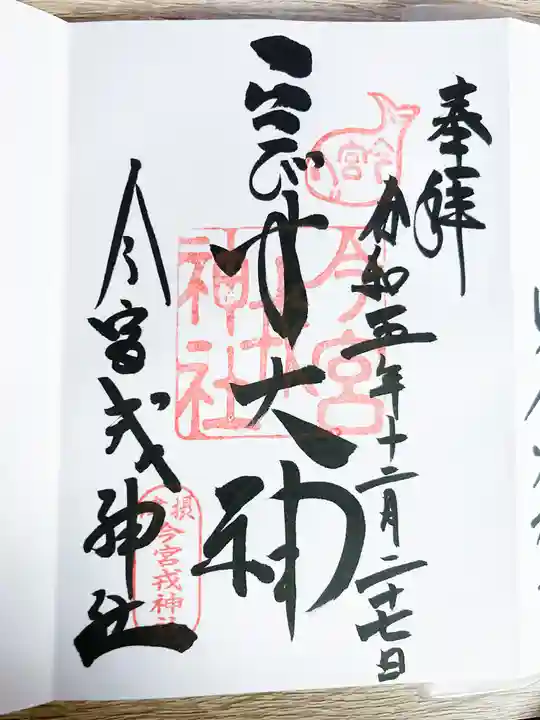 奉拝
令和五年十二月二十七日
ゑびす大神
今宮戎神社
今宮
今宮戎神社
摂津
今宮戎神社